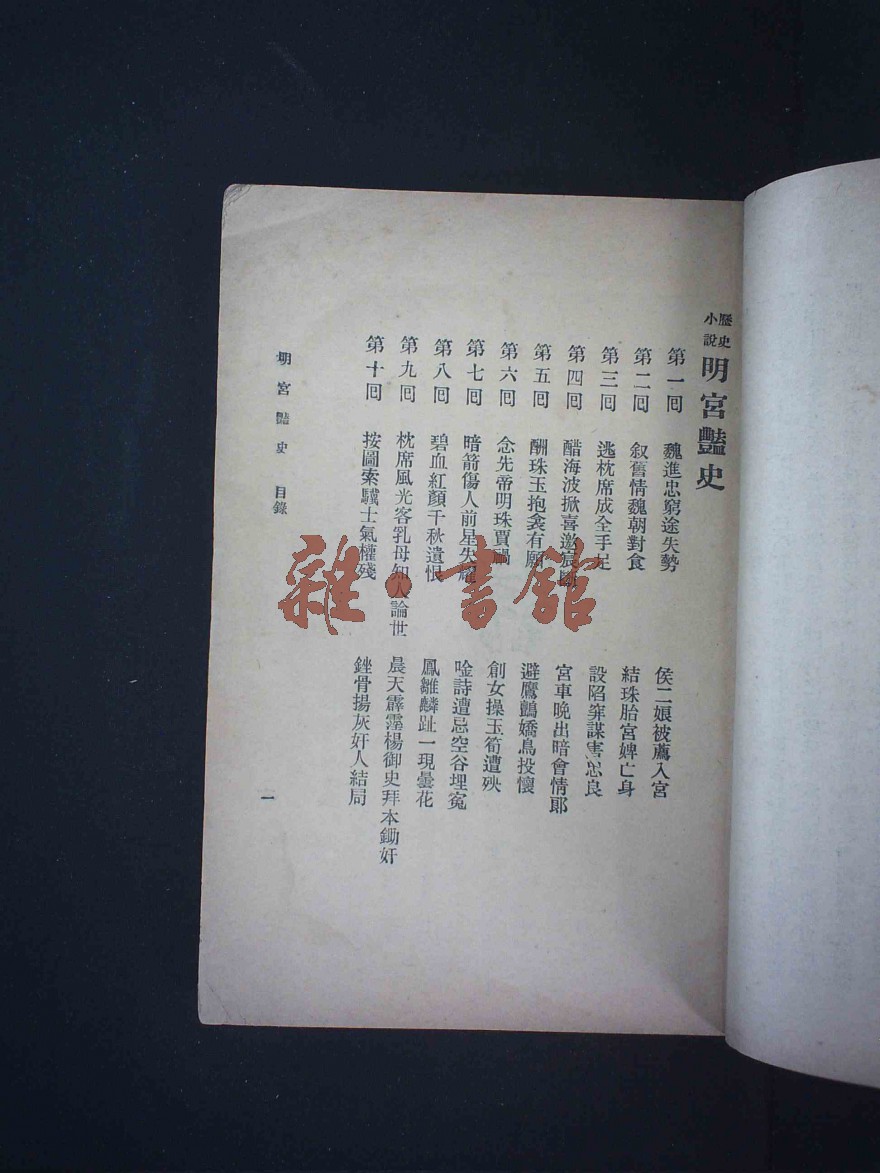 歷史小說 明宮豔史
第一回 魏進忠窮途失勢 侯二娘被薦入宮
第二回 叙舊情魏朝對食 結珠胎宮婢亡身
第三回 逃枕席成全手足 設陷穽謀害忠良
第四回 醋海波掀喜邀宸 宮車晚出暗會情郎
第五回 酬珠玉抱衾有願 避鷹鸇嬌鳥投懷
第六回 念先帝明珠賈禍 創女操玉筍遭殃
第七回 暗箭傷人前星失耀 唫詩遭忌空谷埋寃
第八回 碧血紅顏千秋遺恨 鳳雛麟趾一現曇花
第九回 枕席風光客乳母知人論世 晨天霹靂楊御史拜本鋤奸
第十回 按圖索驥士氣權殘 銼骨揚灰奸人結局
明宮豔史 目錄
一
雜·書館